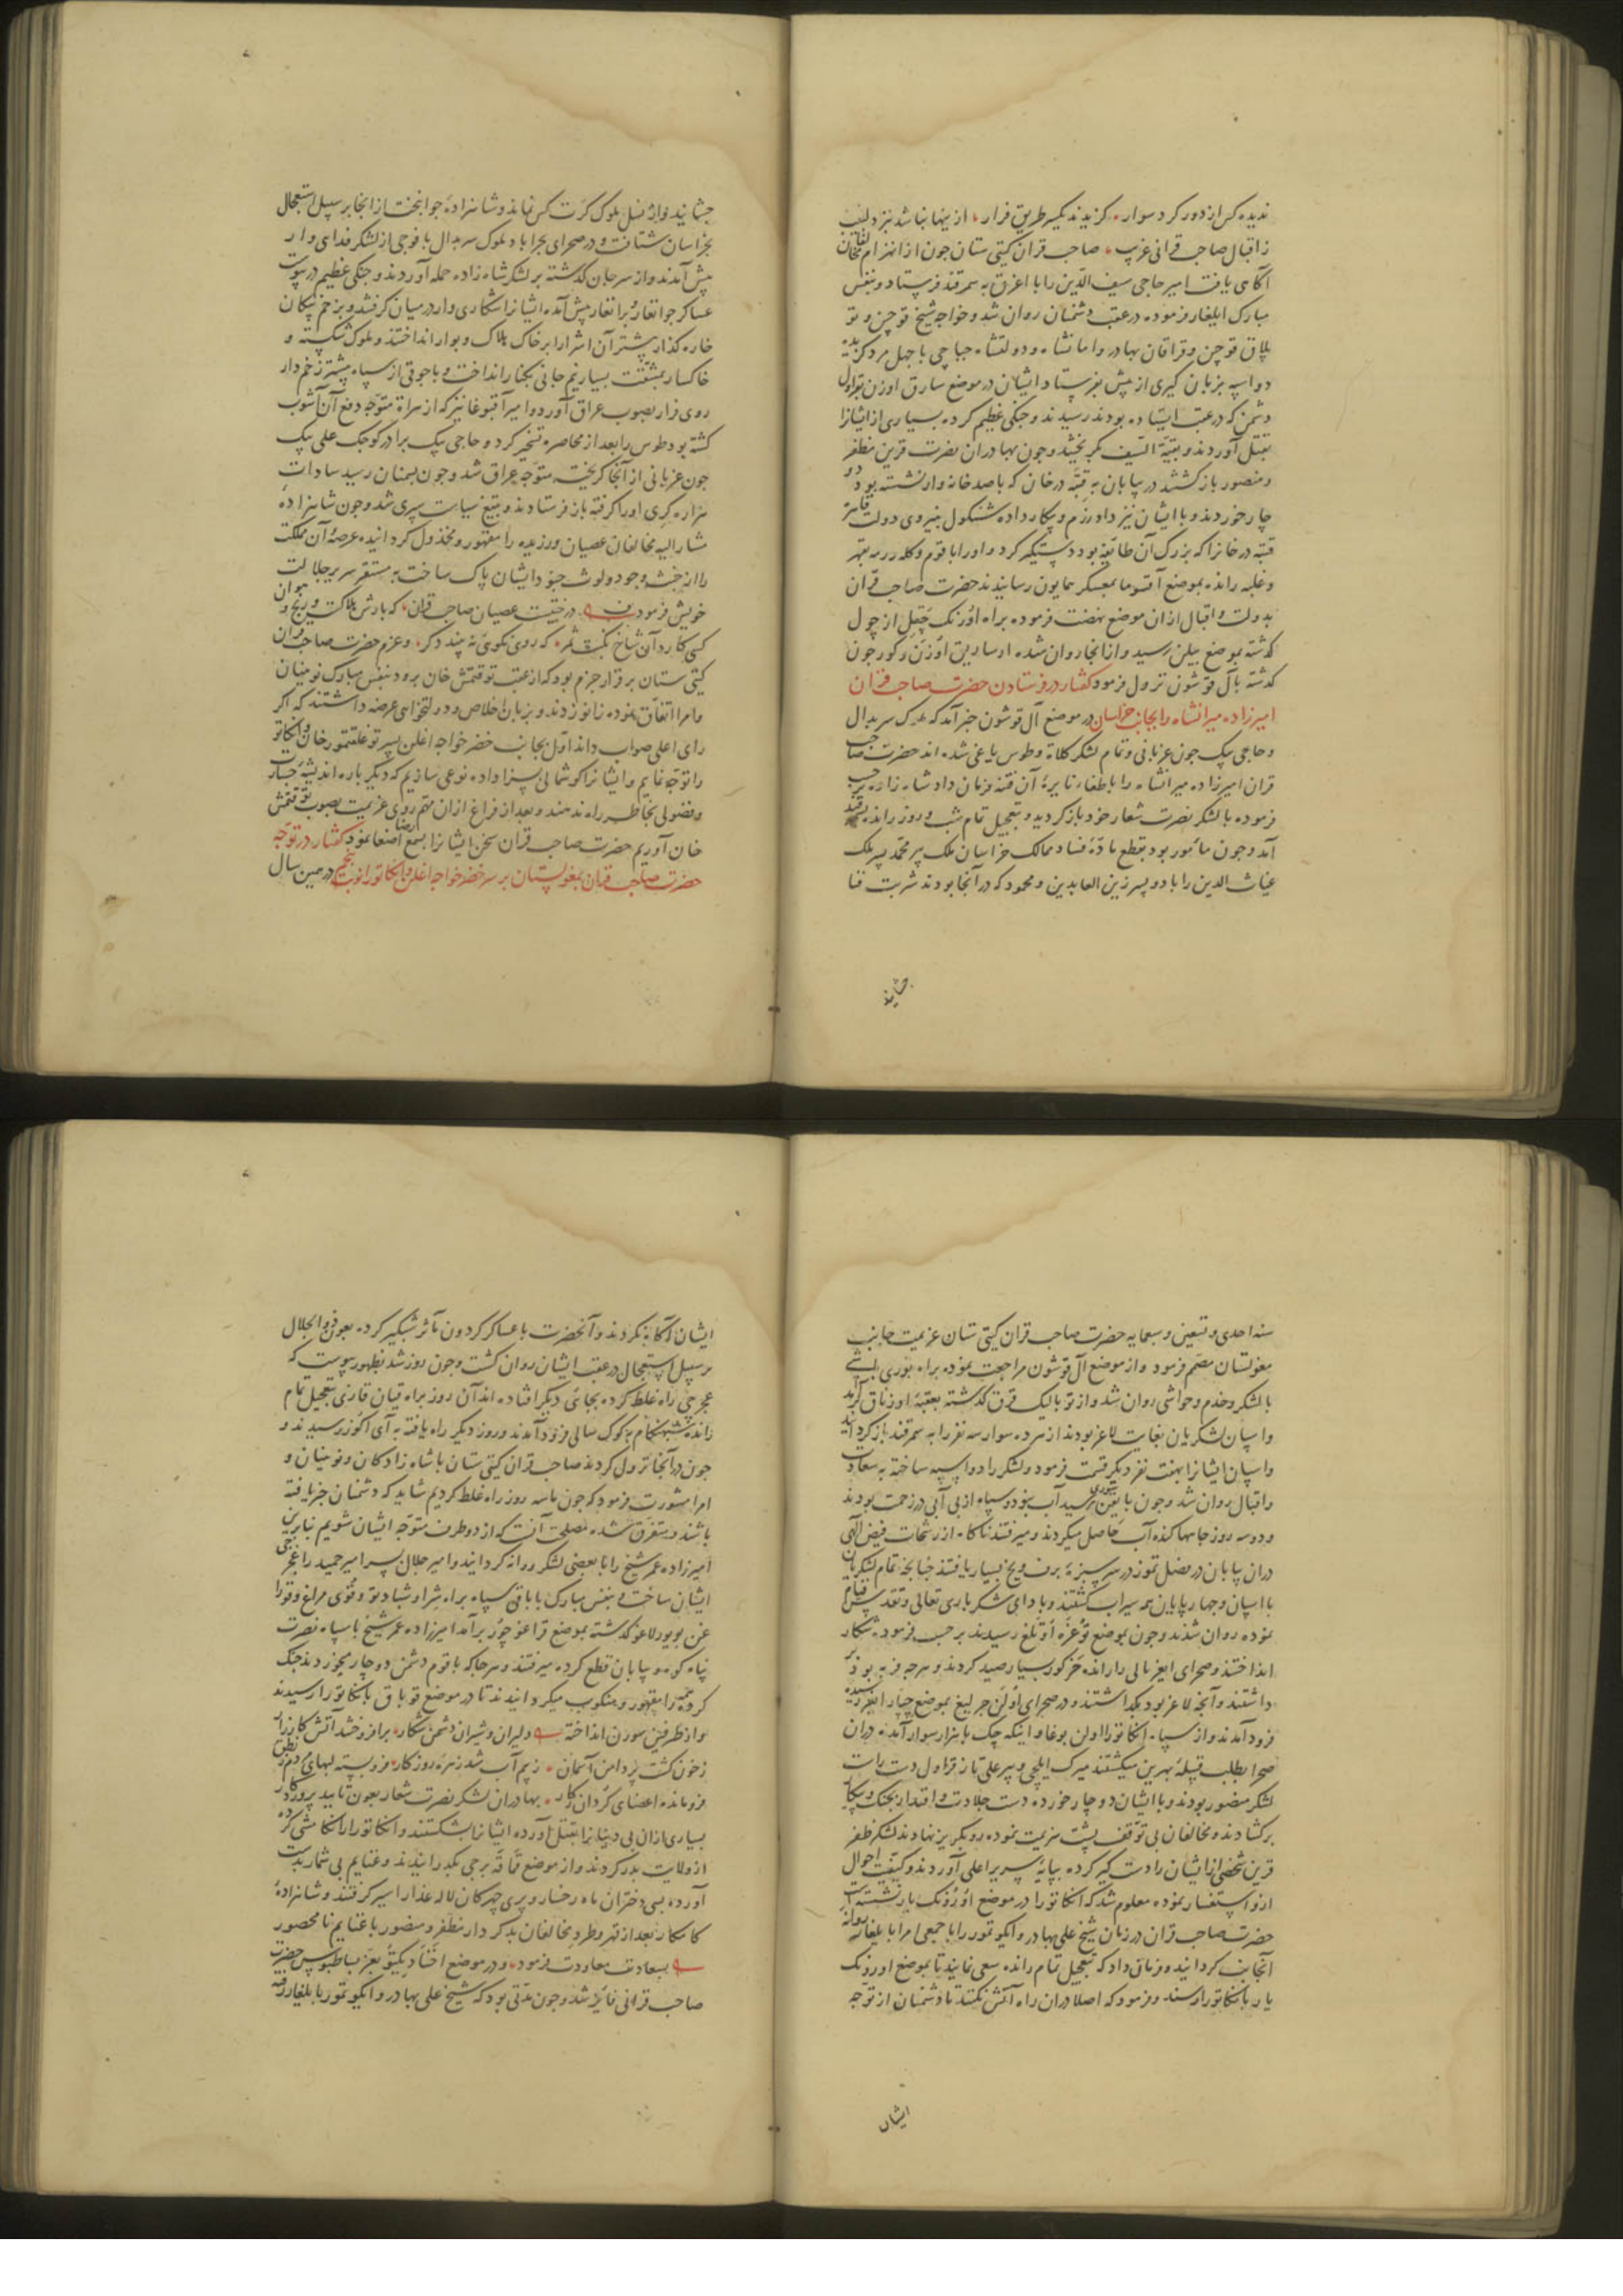 ندیده کس از دور کرد سوار کزیدند یکسر طریق فرار ازینها نباشد نبزد لبیب
ز اقبال صاحب قرانی غریب صاحب قران کیتی ستان جون از انهزام مخالفان
آکاهی یافت امیر حاجی سیف الدین را با اغرق به سمرقند فرستاد و بنفس
مبارک ایلغار فرموده در عقب دشمنان روان شد و خواجه شیخ قوجین و تو
بلاق قوجین و قراقان بهادر و امانشاه و دولتشاه جباجی با جهل مرد کزیده
دو اسپه بزبان کیری از پیش بفرستاد ایشان در موضع سارق اوزن بقراول
دشمن که در عقب ایستاده بودند رسیدند و جنکی عظیم کرده بسیاری از ایشانرا
بقتل آوردند و بقیة السیف بکریختند و جون بهادران نصرت قرین مظفر
و منصور باز کشتند در بیابان به قبّه درخان که با صد خانه وار نشسته بود دو
چار خوردند و با ایشان نیز داد رزم و پیکار داده بنیروی دولت قاهره
قبّه درخانرا که بزرک آن طایفه بود دستکیر کرد و اورا با قوم و کله و رمه بقهر
و غلبه رانده بموضع آقسوما بمعسکر همایون رسانیدند حضرت صاحب قران
بدولت و اقبال ازان موضع نهضت فرموده براه اوزنک چقل از چول
کذشته بموضع بیلن رسید و از انجا روان شده از سارین اوزن و کورجون
کذشته بآل قوشون نزول فرمود کفتار در فرستادن حضرت صاحب قران
امیرزاده میرانشاه را بجانب خراسان در موضع آل قوشون خبر آمد که ملوک سربدال
و حاجی بیک جون غربانی و تمام لشکر کلاة و طوس یاغی شده اند حضرت صاحب
قران امیرزاده میرانشاه را باطفاء نایرۀ آن فتنه فرمان داد شاه زاده بر حسب
فرموده با لشکر نصرت شعار خود باز کردید و بتعجیل تمام شب و روز رانده بسمرقند
آمد و جون مامور بود بقطع مادّۀ فساد ممالک خراسان ملک پیر محمد پسر ملک
غیاث الدین را با دو پسر زین العابدین و محمود که در آنجا بودند شربت فنا
چشانید
چشانید و از نسل ملوک کرت کس نماند و شاهزادۀ جوانبخت از انجا بر سبیل استعجال
بخراسان شتافت و در صحرای بحراباد ملوک سربدال با فوجی از لشکر فدای وار
پیش آمدند و از سر جان کذشته بر لشکر شاه زاده حمله آوردند و جنکی عظیم در پیوست
عساکر جوانغار و برانغار پیش آمده ایشانرا شکاری وار در میان کرفتند و بزخم پیکان
خاره کذار بیشتر آن اشرارا بر خاک هلاک و بوار انداختند و ملوک شکسته و
خاکسار بمشقت بسیار نیم جانی بکنار انداخت و با جوقی از سپاه بیشتر زخم دار
روی فرار بصوب عراق آورد و امیر آقبوغا نیز که از هراة متوجه دفع آن آشوب
کشته بود طوس را بعد از محاصره تسخیر کرد و حاجی بیک برادر کوجک علی بیک
جون غربانی از آنجا کریخته متوجه عراق شد و جون بسمنان رسید سادات
هزاره کری اورا کرفته باز فرستادند و بتیغ سیاست سپری شد و جون شاهزادۀ
مشار الیه مخالفان عصیان ورزیده را مقهور و مخذول کردانیده عرصۀ آن مملکت
را از خبث وجود و لوث جنود ایشان پاک ساخت به مستقر سریر جلالت
خویش فرمود در حقیقت عصیان صاحب قران که بارش هلاکت و رنج و هوان
کسی کارد آن شاخ نکبت ثمر که روی نکوئی نه بیند دکر و عزم حضرت صاحب قران
کیتی ستان بر قرار جزم بود که از عقب توقتمش خان برود بنفس مبارک نوینیان
و امرا اتفاق نموده زانو زدند و بزبان اخلاص و دولتخواهی عرضه داشتند که اکر
رای اعلی صواب داند اول بجانب خضر خواجه اغلن پسر توغلقتمور خان و انکاتو
را توجه نمایم و ایشانرا کوشمالی بسزا داده نوعی سازیم که دیکر باره اندیشۀ جسارت
و فضولی بخاطر راه ندهند و بعد از فراغ ازان مهم روی عزیمت بصوب توقتمش
خان آوریم حضرت صاحب قران سخن ایشانرا بسمع رضا اصغا نمود کفتار در توجه
حضرت صاحب قران بمغولستان بر سر خضر خواجه اغلن و انکاتورا نوبت پنجم در همین سال
سنه احدی و تسعین و سبعمایه حضرت صاحب قران کیتی ستان عزیمت جانب
مغولستان مصمم فرمود و از موضع آل قوشون مراجعت نموده براه بوری باشی
با لشکر و خدم و حواشی روان شد و از توبالیک قرق کذشته بعقبۀ اوزناق بر آمد
و اسپان لشکریان بغایت لاغر بودند از هر ده سوار سه نفر را به سمرقند باز کردانید
و اسپان ایشانرا بهفت نفر دیکر قسمت فرمود و لشکر را دو اسپه ساخته به سعادت
و اقبال روان شد و جون باتغین سوری رسید آب نبود و سپاه از بی آبی در زحمت بودند
و دو سه روز جاهها کنده آب حاصل میکردند و میرفتند ناکاه از رشحات فیض الهی
دران بیابان در فصل تموز در سر سبزۀ برف و یخ بسیار یافتند جنانجه تمام لشکریان
با اسپان و جهارپایان همه سیراب کشتند و با دای شکر باری تعالی و تقدس قیام
نموده روان شدند و جون بموضع توغره اوتلغ رسیدند بر حسب فرموده شکار
انداختند و صحرای ایغریالی دارانده خرکور بسیار صید کردند و هر چه فربه بود بر
داشتند و آنچه لاغر بود بکذاشتند و در صحرای اولن جرلیغ بموضع چپار ایغر رسیده
فرود آمدند و از سپاه انکاتورا اولن بوغا و اینکه چک با هزار سوار آمده دران
صحرا بطلب قبیلۀ بهرین میکشتند میرک ایلچی و پیر علی تاز قراول دست راست
لشکر منصور بودند و با ایشان دوچار خورده دست جلادت و اقتدار بجنک و پیکار
برکشادند و مخالفان بی توقف پشت هزیمت نموده رو بکریز نهادند لشکر ظفر
قرین شخصی از ایشان را دستکیر کرده بپایۀ سریر اعلی آوردند و کیفیت احوال
ازو استفسار نموده معلوم شد که انکاتورا در موضع اورونک یار نشسته است
حضرت صاحب قران در زمان شیخ علی بهادر و ایکو تمور را با جمعی امرا بایلغار روانۀ
آنجانب کردانید و فرمان داد که بتعجیل تمام رانده سعی نمایند تا بموضع اورونک
یار بانکاتورا رسند و فرمود که اصلا دران راه آتش نکنند تا دشمنان از توجه
ایشان
ایشان آکاه نکردند و آنحضرت با عساکر کردون مآثر شبکیر کرده بعون ذو الجلال
بر سبیل استعجال در عقب ایشان روان کشت و جون روز شد بظهور پیوست که
غجرجی راه غلط کرده بجائی دیکر افتاده اند آن روز براه قیان قازی بتعجیل تمام
رانده شبهنکام به کوک سالی فرود آمدند و روز دیکر راه یافته به آی اکوز رسیدند و
جون در آنجا نزول کردند صاحب قران کیتی ستان با شاه زادکان و نوینیان و
امرا مشورت فرمود که جون ما سه روز راه غلط کردیم شاید که دشمنان خبر یافته
باشند و متفرق شده مصلحت آنست که از دو طرف متوجه ایشان شویم بنابرین
امیرزاده عمر شیخ را با بعضی لشکر روانه کردانید و امیر جلال پسر امیر حمید را غجرجی
ایشان ساخت و بنفس مبارک با باقی سپاه براه شرا و شبادتو و قوی مراغ و قورا
غن بویورلاغو کذشته بموضع قراغوچور بر آمد امیرزاده عمر شیخ با سپاه نصرت
پناه کوه و بیابان قطع کرده میرفتند و هر جا که با قوم دشمن دوچار میخوردند جنک
کرده همه را مقهور و منکوب میکردانیدند تا در موضع قوباق بانکاتورا رسیدند
و از طرفین سورن انداخته دلیران و شیران دشمن شکار برافروختند آتش کارزار
ز خون کشت پر دامن آسمان ز بیم آب شد زهرۀ روزکار فرو بسته لبهای مردم ز نطق
فرومانده اعضای کردان ز کار بهادران لشکر نصرت شعار بعون تایید پروردکار
بسیاری ازان بی دینانرا بقتل آورده ایشانرا بشکستند و انکاتورا را انکامشی کرده
از ولایت بدر کردند و از موضع قاقه برجی بکذرانیدند و غنایم بی شمار بدست
آورده بسی دختران ماه رخسار و پری چهرکان لاله عذار اسیر کرفتند و شاهزادۀ
کامکار بعد از قهر و طرد مخالفان بدکردار مظفر و منصور با غنایم نامحصور
بسعادت معاودت فرمود و در موضع اخته دیکتو بعز بساطبوس حضرت
صاحب قرانی فایز شد و جون مدتی بود که شیخ علی بهادر و ایکو تمور با بلغار رفته